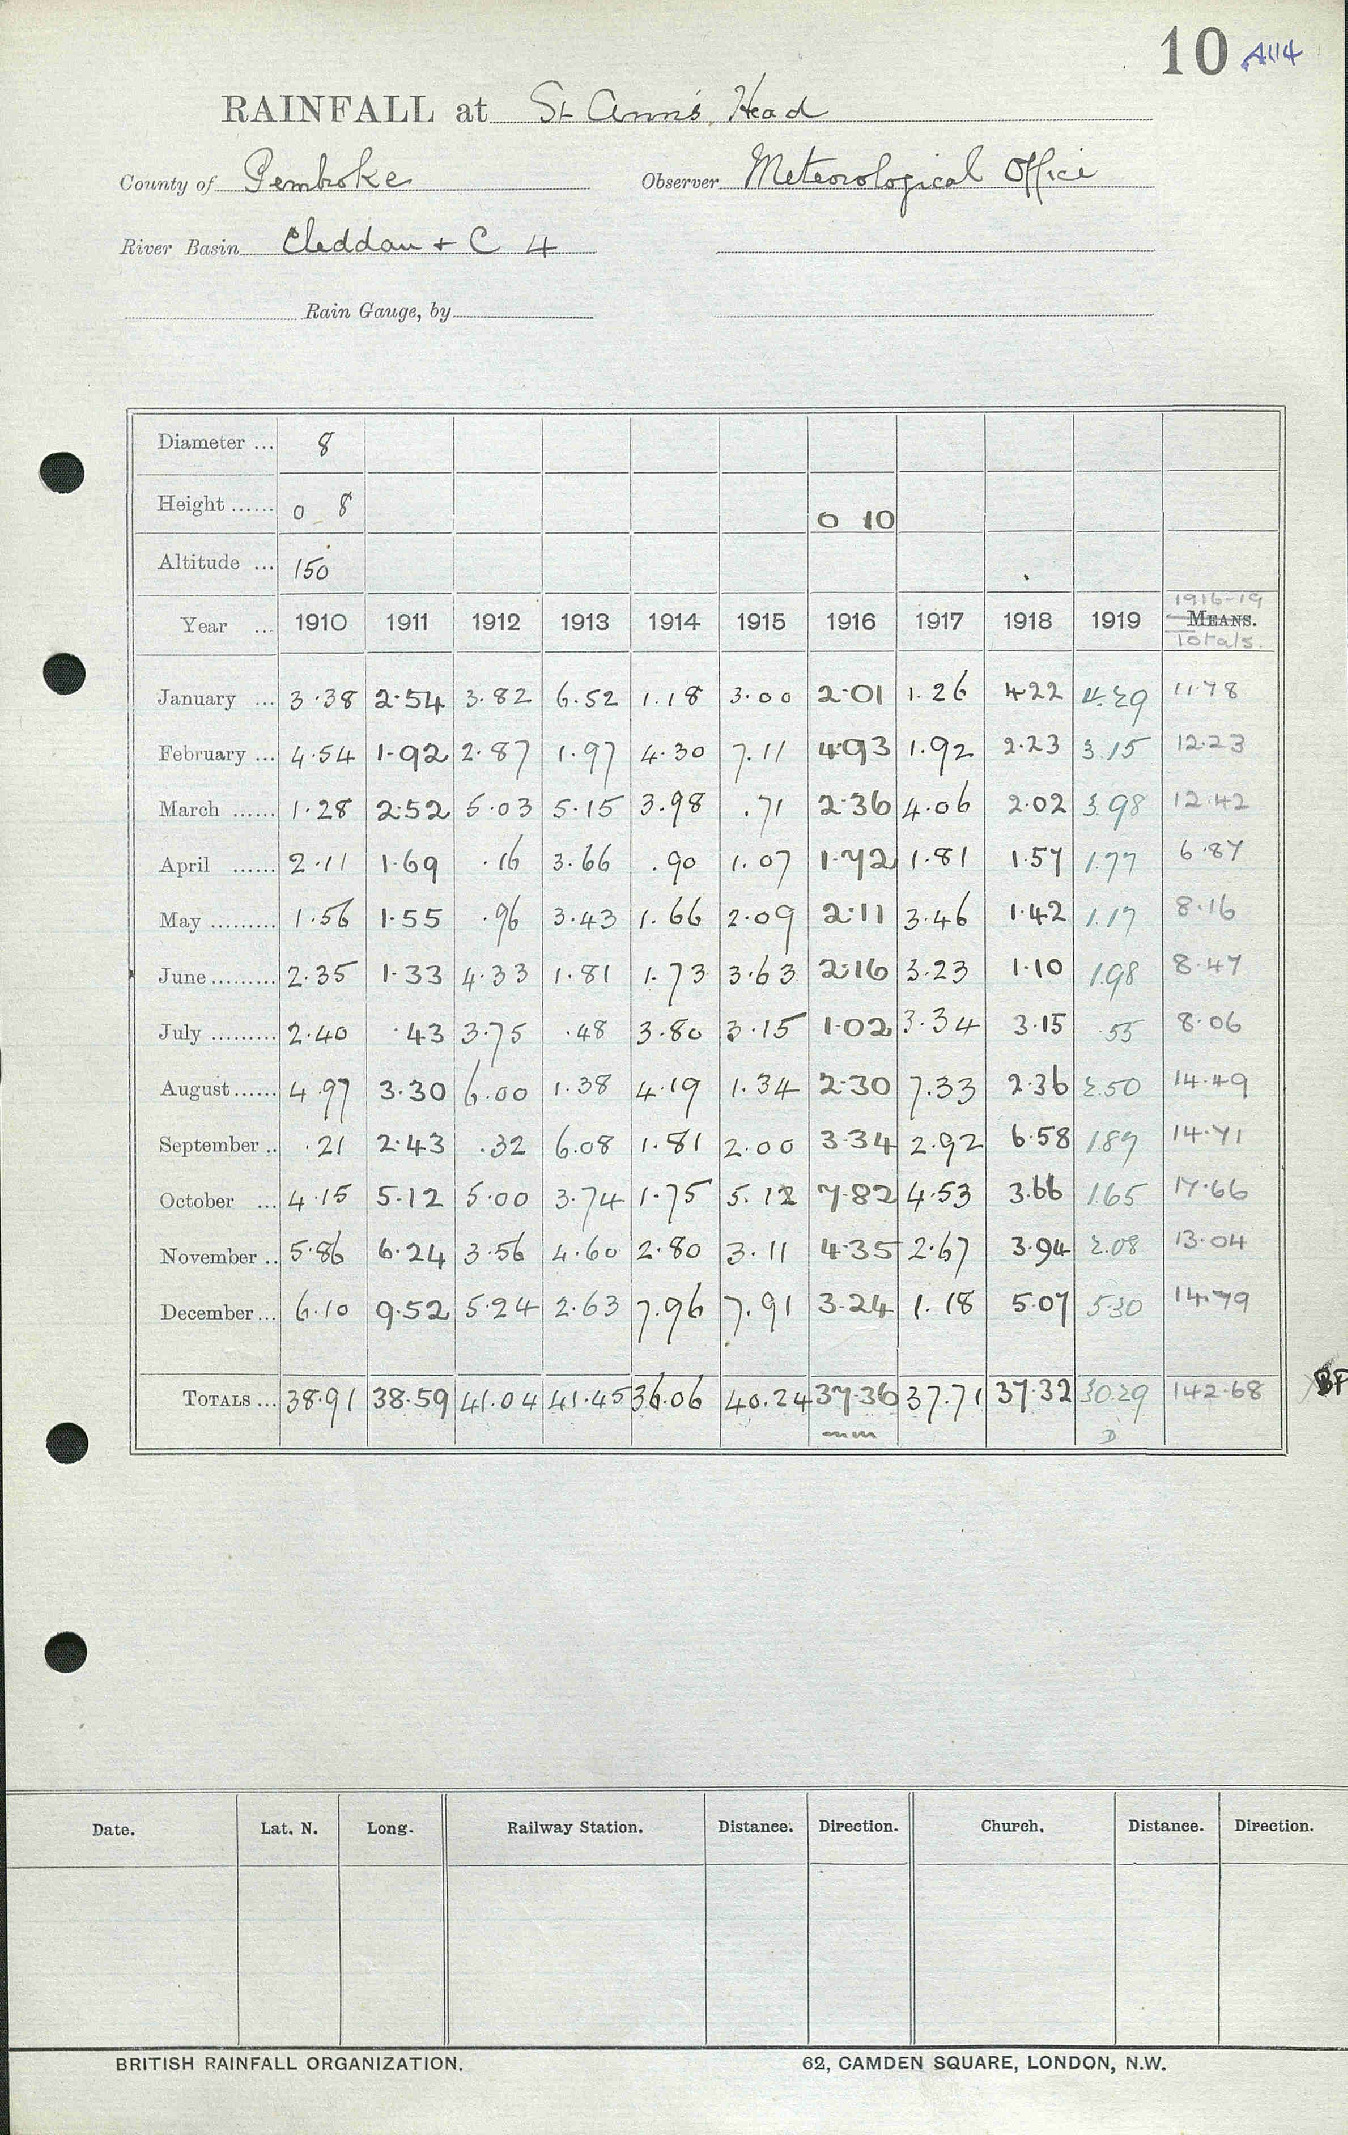 10 A114
RAINFALL at St Ann's Head
County of Pembroke Observer Meteorological Office
River Basin Cleddau + C 4
Rain Gauge, by
Diameter ... 8
Height ...... 0 8 0 10
Altitude ... 150
1916-19
Year ... 1910 1911 1912 1913 1914 1915 1916 1917 1918 1919 MEANS.
Totals.
January ... 3.38 2.54 3.82 6.52 1.18 3.00 2.01 1.26 4.22 4.29 11.78
February ... 4.54 1.92 2.87 1.97 4.30 7.11 4.93 1.92 2.23 3.15 12.23
March ...... 1.28 2.52 5.03 5.15 3.98 .71 2.36 4.06 2.02 3.98 12.42
April ...... 2.11 1.69 .16 3.66 .90 1.07 1.72 1.81 1.57 1.77 6.87
May ......... 1.56 1.55 .96 3.43 1.66 2.09 2.11 3.46 1.42 1.17 8.16
June ......... 2.35 1.33 4.33 1.81 1.73 3.63 2.16 3.23 1.10 1.98 8.47
July ......... 2.40 .43 3.75 .48 3.80 3.15 1.02 3.34 3.15 .55 8.06
August ...... 4.97 3.30 6.00 1.38 4.19 1.34 2.30 7.33 2.36 2.50 14.49
September .. .21 2.43 .32 6.08 1.81 2.00 3.34 2.92 6.58 1.87 14.71
October ... 4.15 5.12 5.00 3.74 1.75 5.12 7.82 4.53 3.66 1.65 17.66
November .. 5.86 6.24 3.56 4.60 2.80 3.11 4.35 2.67 3.94 2.08 13.04
December ... 6.10 9.52 5.24 2.63 7.96 7.91 3.24 1.18 5.07 5.30 14.79
TOTALS ... 38.91 38.59 41.04 41.45 36.06 40.24 37.36 37.71 37.32 30.29 142.68
mm D
Date. Lat. N. Long. Railway Station. Distance. Direction. Church. Distance. Direction.
BRITISH RAINFALL ORGANIZATION. 62, CAMDEN SQUARE, LONDON, N.W.